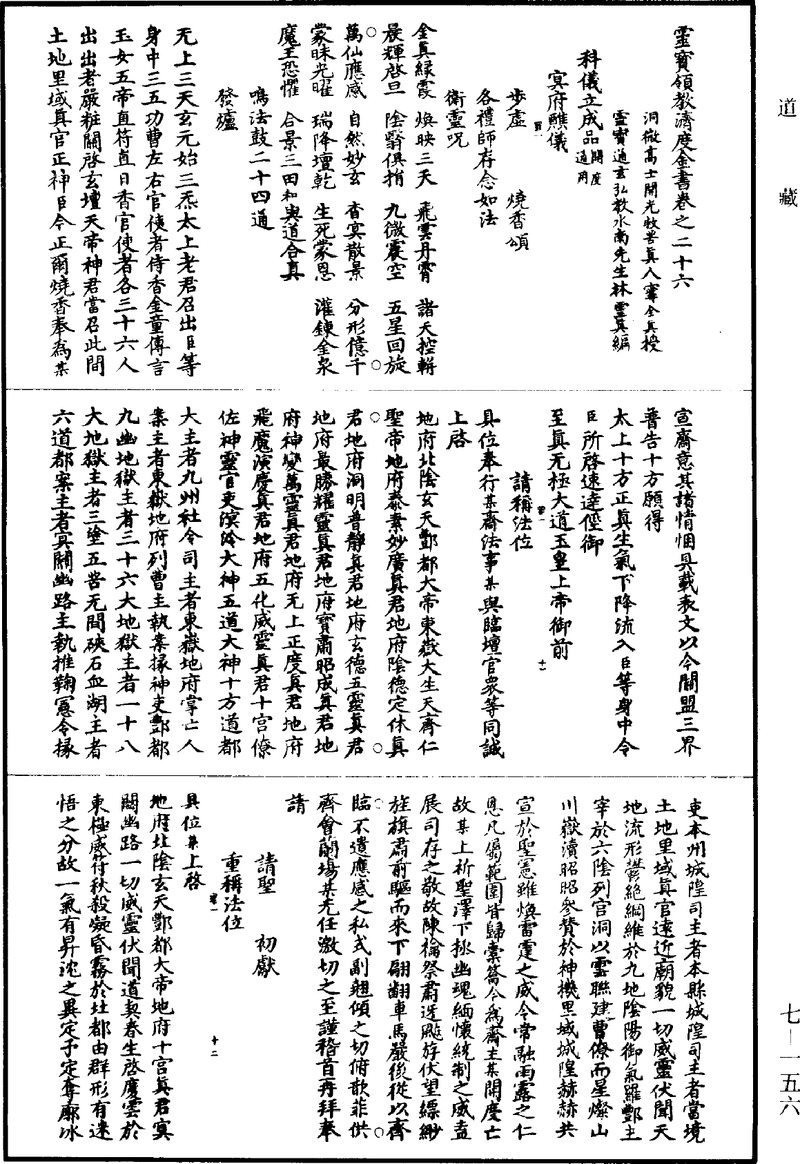 道藏
靈寶領教濟度金書卷之二十六
洞微高士開光救苦真人甯全真授
靈寶通玄弘教水南先生林靈真編
科儀立成品 開度通用
冥府醮儀
步虛　燒香頌
各禮師存念如法
衛靈呪
金真緑霞　煥映三天　飛雲丹霄　諸天控輧
晨輝啓旦　陰翳俱捐　九微震空　五星回旋
萬仙應感　自然妙玄　杳冥散景　分形億千
蒙昧光曜　瑞降壇乾　生死蒙恩　灌鍊金泉
魔王恐懼　合景三田　和與道合真
鳴法鼓二十四通
發爐
无上三天玄元始三炁太上老君召出臣等
身中三五功曹左右官使者侍香金童傳言
玉女五帝直符直日香官使者各三十六人
出出者嚴粧關啓玄壇天帝神君當召此間
土地里域真官正神臣今正爾燒香奉為某
宣齋意某諸情悃具載表文以今關盟三界
普告十方願得
太上十方正真生氣下降流入臣等身中令
臣所啓速達俓御
至真无極大道玉皇上帝御前
請稱法位
具位奉行某齋法事某與臨壇官衆等同誠
上啓
地府北陰玄天酆都大帝東嶽大生天齊仁
聖帝地府泰素妙廣真君地府陰德定休真
君地府洞明普靜真君地府玄德五靈真君
地府最勝耀靈真君地府寶肅昭成真君地
府神變萬靈真君地府无上正度真君地府
飛魔演慶真君地府五化威靈真君十宮僚
佐神靈官吏溟泠大神五道大神十方道都
大主者九州社令司主者東嶽地府掌亡人
案主者東嶽地府列曹主執案掾神吏酆都
九幽地獄主者三十六大地獄主者一十八
大地獄主者三塗五苦无間硤石血湖主者
六道都案主者冥關幽路主執推鞫冤令掾
吏本州城隍司主者本縣城隍司主者當境
土地里域真官遠近廟貌一切威靈伏聞天
地流形鬱絶綱維於九地陰陽御氣羅酆主
宰於六陰列宮洞以雲聯建曹僚而星燦山
川嶽瀆昭昭參贊於神機里域城隍赫赫共
宣於聖憲雖煥雷霆之威令常融雨露之仁
恩凡偈範圍皆歸橐籥今為齋主某開度亡
故某上祈聖澤下拯幽魂緬懷統制之威盍
展司存之敬故陳禬祭肅迓飈斿伏望縹緲
旌旗肅前驅而來下翩翻車馬嚴後從以齊
臨不遺應感之私式副翹傾之切俯歆菲供
齊會蘭場某无任激切之至謹稽首再拜奉
請
請聖　初獻
重稱法位
具位某上啓
地府北陰玄天酆都大帝地府十宮真君冥
關幽路一切威靈伏聞道契春生啓慶雲於
東極威符秋殺凝昏霧於北都由群形有迷
悟之分故一氣有昇沈之異定予定奪廓冰
七—一五六